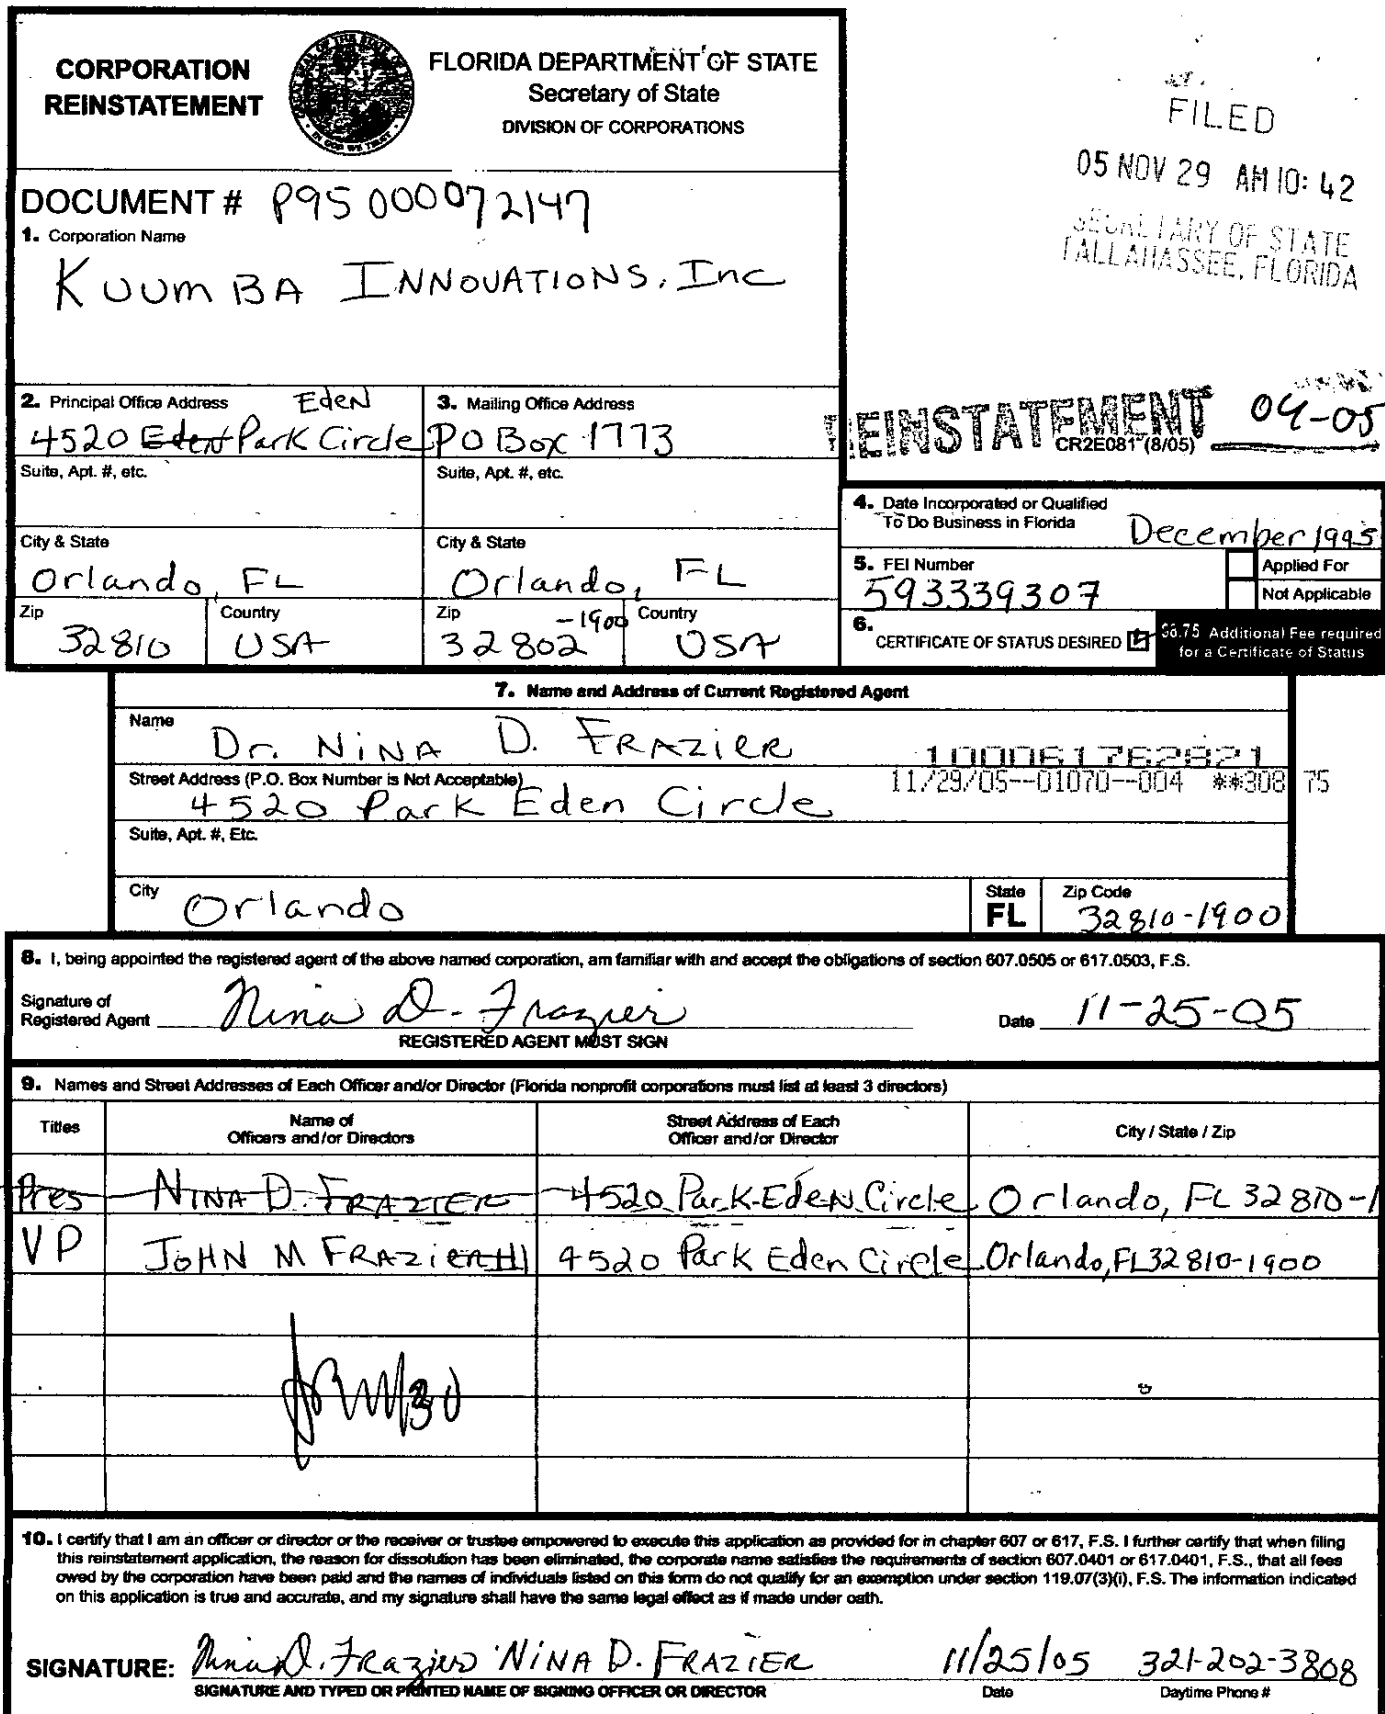 CORPORATION
REINSTATEMENT
FLORIDA DEPARTMENT OF STATE
Secretary of State
DIVISION OF CORPORATIONS
FILED
05 NOV 29 AM 10: 42
SECRETARY OF STATE
TALLAHASSEE, FLORIDA
DOCUMENT # P95000072147
1. Corporation Name
KUUMBA INNOVATIONS, Inc
REINSTATEMENT 04-05
CR2E081 (8/05)
2. Principal Office Address Eden
4520 Eden Park Circle
3. Mailing Office Address
PO Box 1773
Suite, Apt. #, etc.
Suite, Apt. #, etc.
City & State
Orlando, FL
City & State
Orlando, FL
Zip
32810
Country
USA
Zip
32802 -1900
Country
USA
4. Date Incorporated or Qualified
To Do Business in Florida December 1995
5. FEI Number
593339307
Applied For
Not Applicable
6.
CERTIFICATE OF STATUS DESIRED
$8.75 Additional Fee required
for a Certificate of Status
7. Name and Address of Current Registered Agent
Name
Dr. NINA D. FRAZIER
100061762821
Street Address (P.O. Box Number is Not Acceptable)
11/29/05--01070--004 **308 75
4520 Park Eden Circle
Suite, Apt. #, Etc.
City
Orlando
State
FL
Zip Code
32810-1900
8. I, being appointed the registered agent of the above named corporation, am familiar with and accept the obligations of section 607.0505 or 617.0503, F.S.
Signature of
Registered Agent Nina D. Frazier
REGISTERED AGENT MUST SIGN
Date 11-25-05
9. Names and Street Addresses of Each Officer and/or Director (Florida nonprofit corporations must list at least 3 directors)
Titles
Name of
Officers and/or Directors
Street Address of Each
Officer and/or Director
City / State / Zip
Pres NINA D. FRAZIER 4520 Park Eden Circle Orlando, FL 32810-1
VP JOHN M FRAZIER III 4520 Park Eden Circle Orlando, FL 32810-1900
10. I certify that I am an officer or director or the receiver or trustee empowered to execute this application as provided for in chapter 607 or 617, F.S. I further certify that when filing
this reinstatement application, the reason for dissolution has been eliminated, the corporate name satisfies the requirements of section 607.0401 or 617.0401, F.S., that all fees
owed by the corporation have been paid and the names of individuals listed on this form do not qualify for an exemption under section 119.07(3)(i), F.S. The information indicated
on this application is true and accurate, and my signature shall have the same legal effect as if made under oath.
SIGNATURE: Nina D. Frazier NINA D. FRAZIER 11/25/05 321-202-3808
SIGNATURE AND TYPED OR PRINTED NAME OF SIGNING OFFICER OR DIRECTOR
Date
Daytime Phone #